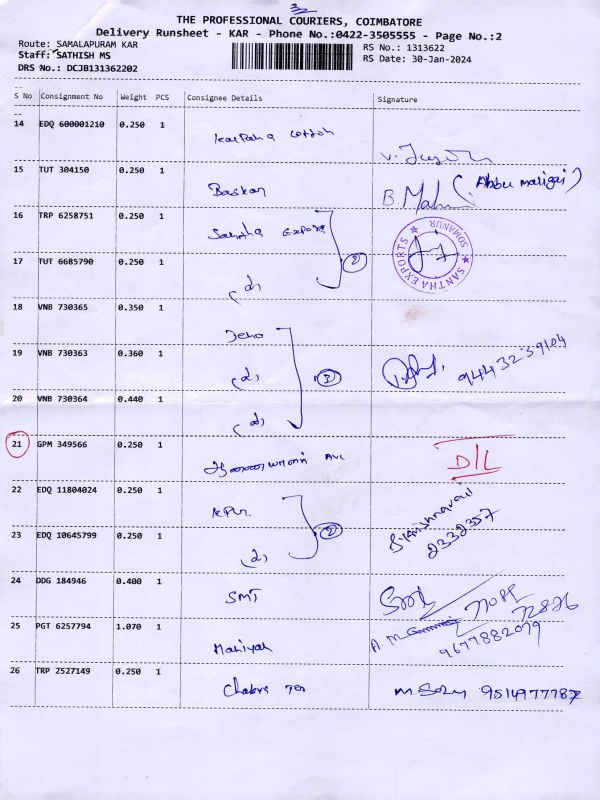 32
THE PROFESSIONAL COURIERS, COIMBATORE
Delivery Runsheet - KAR - Phone No.:0422-3505555 - Page No.:2
Route: SAMALAPURAM KAR
RS No.: 1313622
Staff: SATHISH MS
RS Date: 30-Jan-2024
DRS No.: DCJB131362202
S No Consignment No Weight PCS Consignee Details Signature
14 EDQ 600001210 0.250 1
15 TUT 304150 0.250 1 Baskar B. Mahi (Abbu maligai)
16 TRP 6258751 0.250 1 Santha Exports
SANTHA EXPORTS ★ SOMANUR ★
17 TUT 6685790 0.250 1 (d) 2
18 VNB 730365 0.350 1
19 VNB 730363 0.360 1 (d) 3 94432 39104
20 VNB 730364 0.440 1 (d)
21 GPM 349566 0.250 1 D/L
22 EDQ 11804024 0.250 1 KPR
23 EDQ 10645799 0.250 1 (d) 2 2332357
24 DDG 184946 0.400 1 SMT
25 PGT 6257794 1.070 1 A. M 9677882079
26 TRP 2527149 0.250 1 Chakra Tex 9514977787